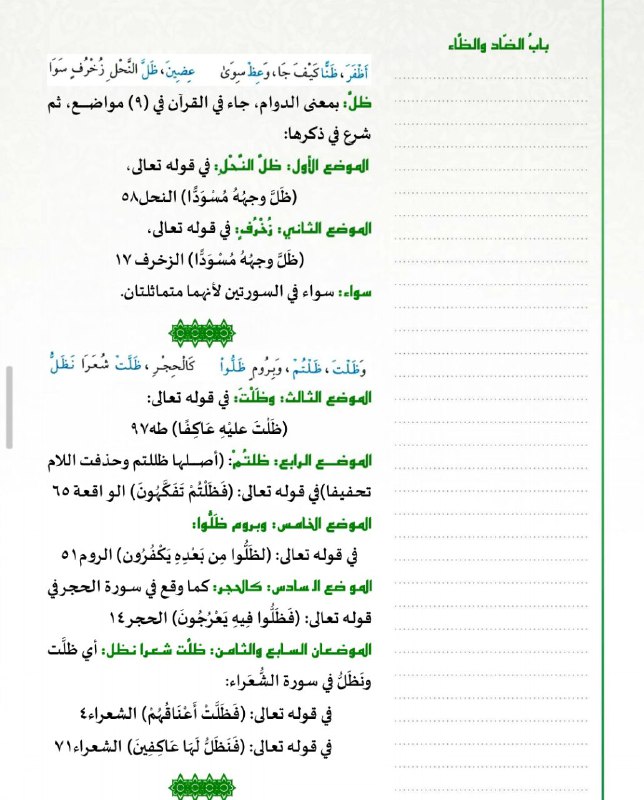 بابُ الضّاد والظّاء
أَظْفَرَ، ظَنًّا كَيْفَ جَا، وَعِظْ سِوَىٰ عِضِينَ، ظَلَّ النَّحْلِ زُخْرُفٍ سَوَا
ظلَّ: بمعنى الدوام، جاء في القرآن في (٩) مواضع، ثم
شرع في ذكرها:
الموضع الأول: ظلَّ النَّحْلِ: في قوله تعالى،
(ظَلَّ وجهُهُ مُسْوَدًّا) النحل٥٨
الموضع الثاني: زُخْرُفٍ: في قوله تعالى،
(ظَلَّ وجهُهُ مُسْوَدًّا) الزخرف ١٧
سواء: سواء في السورتين لأنهما متماثلتان.
وَظَلْتَ، ظَلْتُمْ، وَبِرُومٍ ظَلُّوا كَالْحِجْرِ، ظَلَّتْ شُعَرَا نَظَلُّ
الموضع الثالث: وظَلْتَ: في قوله تعالى:
(ظَلْتَ عليْهِ عَاكِفًا) طه٩٧
الموضع الرابع: ظلتُمْ: (أصلها ظللتم وحذفت اللام
تحفيفا)في قوله تعالى: (فَظَلْتُمْ تَفَكَّهُونَ) الو اقعة ٦٥
الموضع الخامس: وبروم ظَلُّوا:
في قوله تعالى: (لظَلُّوا مِن بَعْدِهِ يَكْفُرُون) الروم٥١
المو ضع الـسادس: كالحجر: كما وقع في سورة الحجر في
قوله تعالى: (فَظَلُّوا فِيهِ يَعْرُجُونَ) الحجر١٤
الموضعان السابع والثامن: ظلّت شعرا نظل: أي ظلَّت
ونَظَلُّ في سورة الشُّعَراء:
في قوله تعالى: (فَظَلَّتْ أَعْنَاقُهُمْ) الشعراء٤
في قوله تعالى: (فَنَظَلُّ لَهَا عَاكِفِينَ) الشعراء٧١